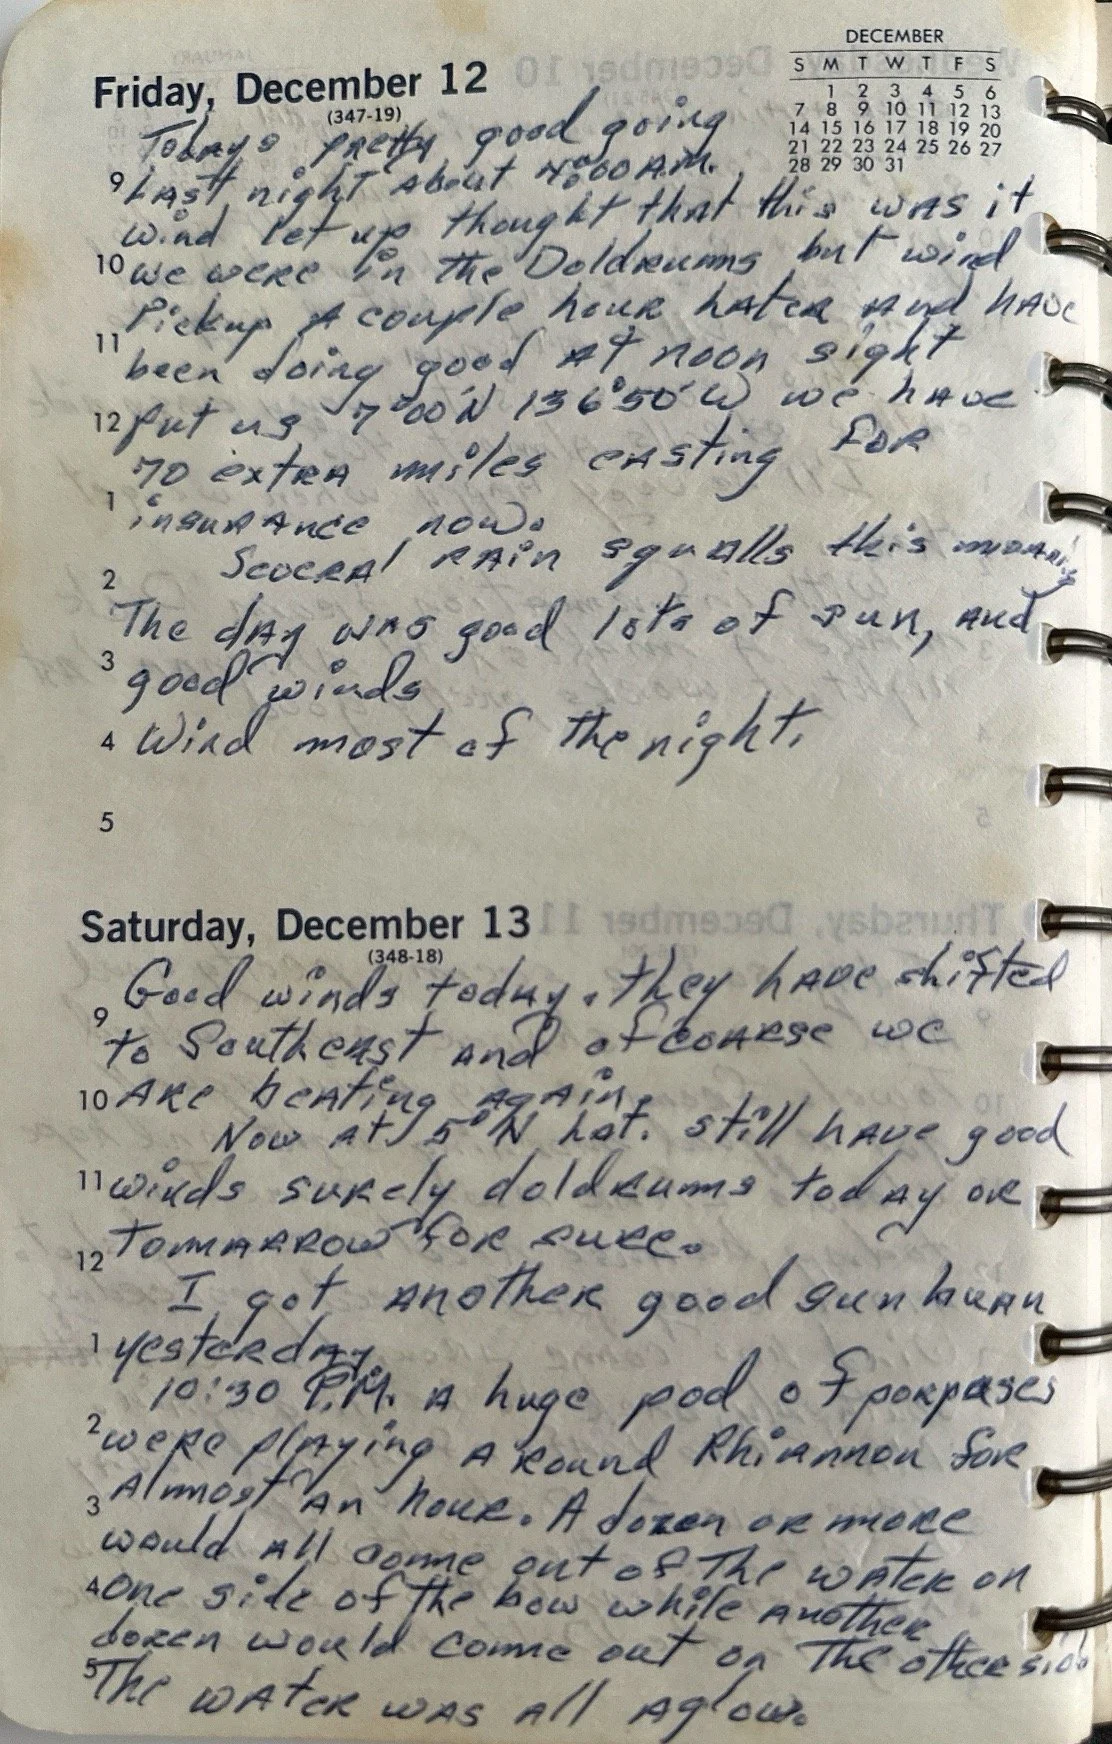 DECEMBER
S M T W T F S
1 2 3 4 5 6
7 8 9 10 11 12 13
14 15 16 17 18 19 20
21 22 23 24 25 26 27
28 29 30 31
Friday, December 12
(347-19)
Todays pretty good going
9 Last night about 4:00 A.M.
wind let up thought that this was it
10 we were in the Doldrumms but wind
Pickup A couple hour later and have
11 been doing good At noon sight
12 put us 7°00'N 136°50'W we have
70 extra miles easting for
1 insurance now.
Several rain squalls this morning
2 The day was good lots of sun, and
3 good winds
4 Wind most of the night.
5
Saturday, December 13
(348-18)
Good winds today. they have shifted
9 to Southeast and of coarse we
10 Are beating again.
Now at 5°N Lat. still have good
11 winds surely doldrumms today or
12 Tommarrow for sure.
I got another good sunburn
1 yesterday
10:30 P.M. A huge pod of porpases
2 were playing around Rhiannon for
3 Almost an hour. A dozen or more
would all come out of The water on
4 one side of the bow while another
dozen would come out on The other side
5 The water was all aglow.